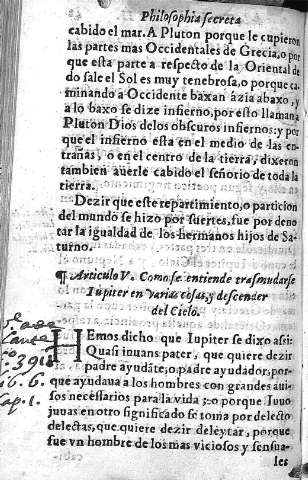 Philosophia secreta
cabido el mar. A Pluton porque le cupieron
las partes mas Occidentales de Grecia, o por
que esta parte a respecto de la Oriental de
do sale el Sol es muy tenebrosa, o porque ca
minando a Occidente baxan azia abaxo, y
a lo baxo se dize infierno, por esto llaman a
Pluton Dios de los obscuros infiernos: y por
que el infierno esta en el medio de las en-
trañas, o en el centro de la tierra, dixeron
tambien auerle cabido el señorio de toda la
tierra.
Dezir que este repartimiento, o particion
del mundo se hizo por suertes, fue por deno
tar la igualdad de los hermanos hijos de Sa-
turno.
¶ Articulo V. Como se entiende trasmudarse
Iupiter en varias cosas, y descender
del Cielo.
HEmos dicho que Iupiter se dixo assi:
Quasi iuuans pater, que quiere dezir
padre ayudāte, o padre ayudador, por-
que ayudaua a los hombres con grandes aui-
sos necessarios para la vida; o porque Iuuo
juuas en otro significado se toma por delecto
delectas, que quiere dezir deleytar, porque
fue vn hombre de los mas viciosos y sensua-
les
398
li. 6.
Cap. 1.